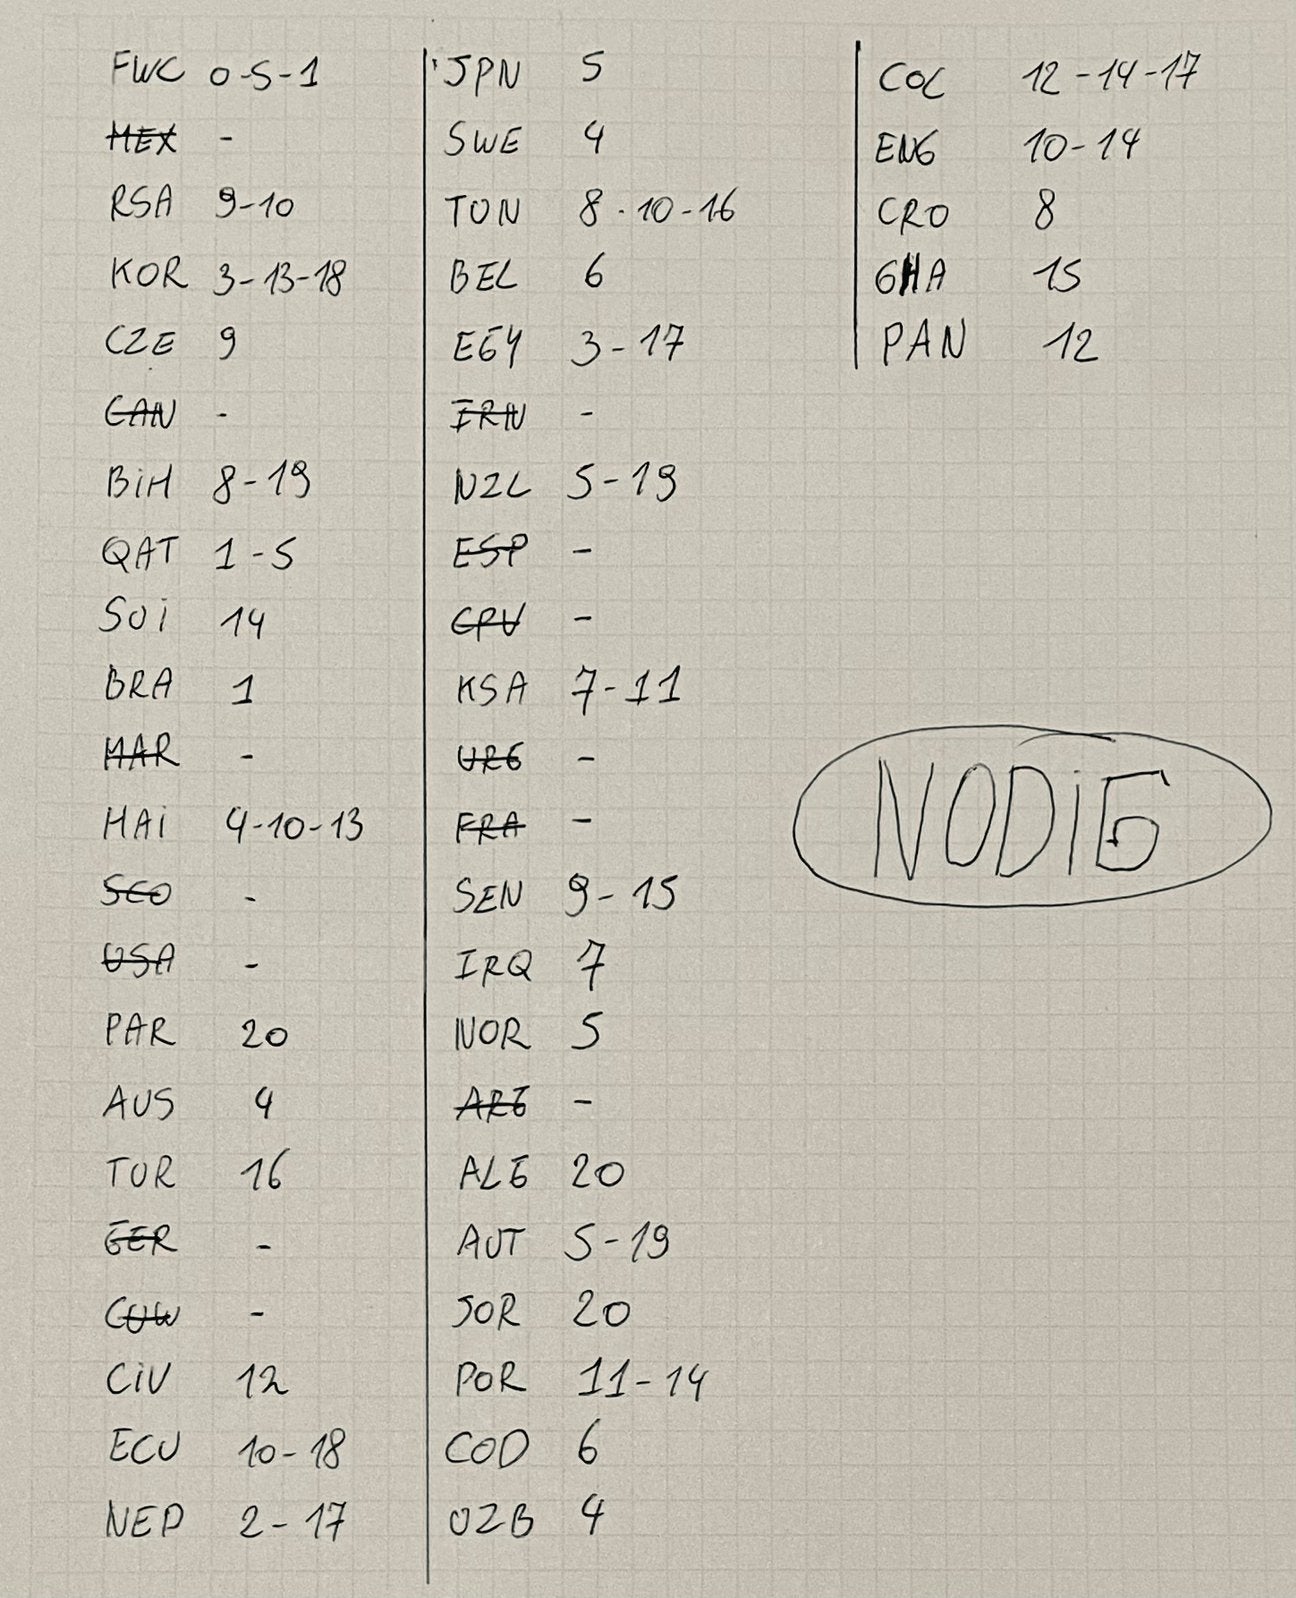 FWC 0-5-1
MEX -
RSA 9-10
KOR 3-13-18
CZE 9
CAN -
BiH 8-19
QAT 1-5
SUi 14
BRA 1
MAR -
HAi 4-10-13
SCO -
USA -
PAR 20
AUS 4
TUR 16
GER -
CUW -
CiV 12
ECU 10-18
NED 2-17
JPN 5
SWE 4
TUN 8-10-16
BEL 6
EGY 3-17
IRN -
NZL 5-19
ESP -
CPV -
KSA 7-11
URG -
FRA -
SEN 9-15
IRQ 7
NOR 5
ARG -
ALG 20
AUT 5-19
JOR 20
POR 11-14
COD 6
UZB 4
COL 12-14-17
ENG 10-14
CRO 8
GHA 15
PAN 12
NODiG